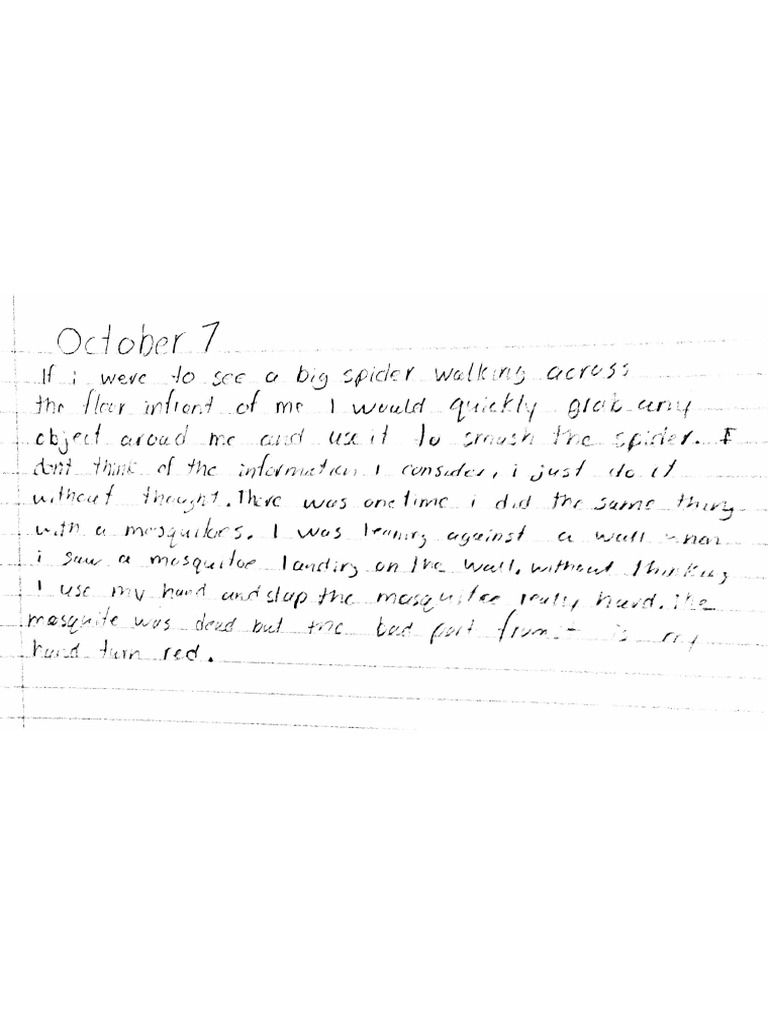 October 7
If i were to see a big spider walking across
the floor infront of me I would quickly grab any
object aroud me and use it to smash the spider. I
dont think of the information I consider, i just do it
without thought. There was one time i did the same thing
with a mosquitoes. I was leaning against a wall when
i saw a mosquitoe landing on the wall. without thinking
I use my hand and slap the mosquitoe really hard. The
mosquite was dead but the bad part from it is my
hand turn red.